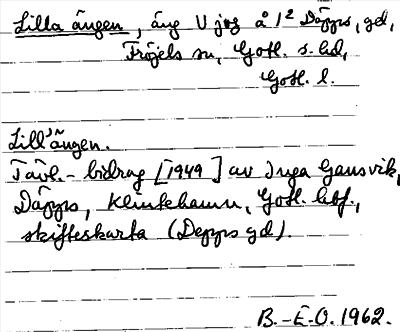 Lilla ängen, äng V jog å 1² Däpps, gd,
Fröjels sn, Gotl. s. hd,
Gotl. l.
Lill'ängen.
Tävl.-bidrag [1949] av Inga Gansvik,
Däpps, Klintehamn, Gotl. hbf.,
skifteskarta (Depps gd).
B.-E.O. 1962.